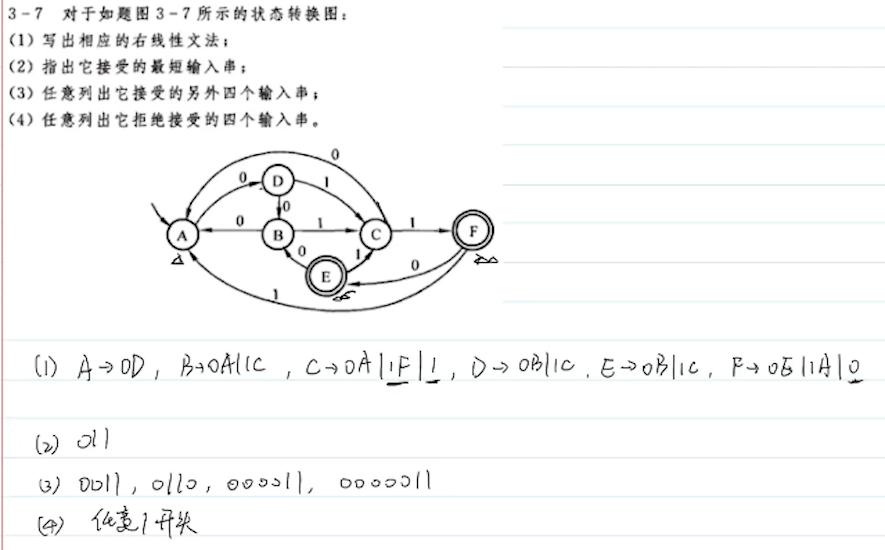 3-7 对于如题图3-7所示的状态转换图：
(1) 写出相应的右线性文法；
(2) 指出它接受的最短输入串；
(3) 任意列出它接受的另外四个输入串；
(4) 任意列出它拒绝接受的四个输入串。
0
0 D 1
0
A 0 B 1 C 1 F
0 E 1 0
1
(1) A→0D, B→0A|1C, C→0A|1F|1, D→0B|1C, E→0B|1C, F→0E|1A|0
(2) 011
(3) 0011, 0110, 000011, 0000011
(4) 任意1开头